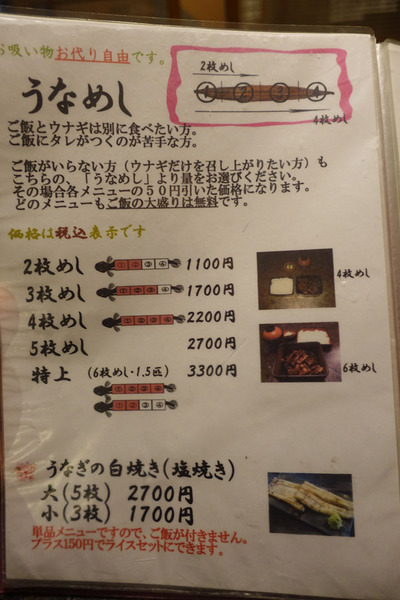 お吸い物お代り自由です。
2枚めし
① ② ③ ④
4枚めし
うなめし
ご飯とウナギは別に食べたい方。
ご飯にタレがつくのが苦手な方。
ご飯がいらない方（ウナギだけを召し上がりたい方）も
こちらの、「うなめし」より量をお選びください。
その場合各メニューの５０円引いた価格になります。
どのメニューもご飯の大盛りは無料です。
価格は税込表示です
2枚めし ①②③④ 1100円
3枚めし ①②③④ 1700円
4枚めし ①②③④ 2200円
5枚めし 2700円
特上 (6枚めし・1.5匹) 3300円
①②③④
①②③④
4枚めし
6枚めし
うなぎの白焼き(塩焼き)
大(5枚) 2700円
小(3枚) 1700円
単品メニューですので、ご飯が付きません。
プラス150円でライスセットにできます。